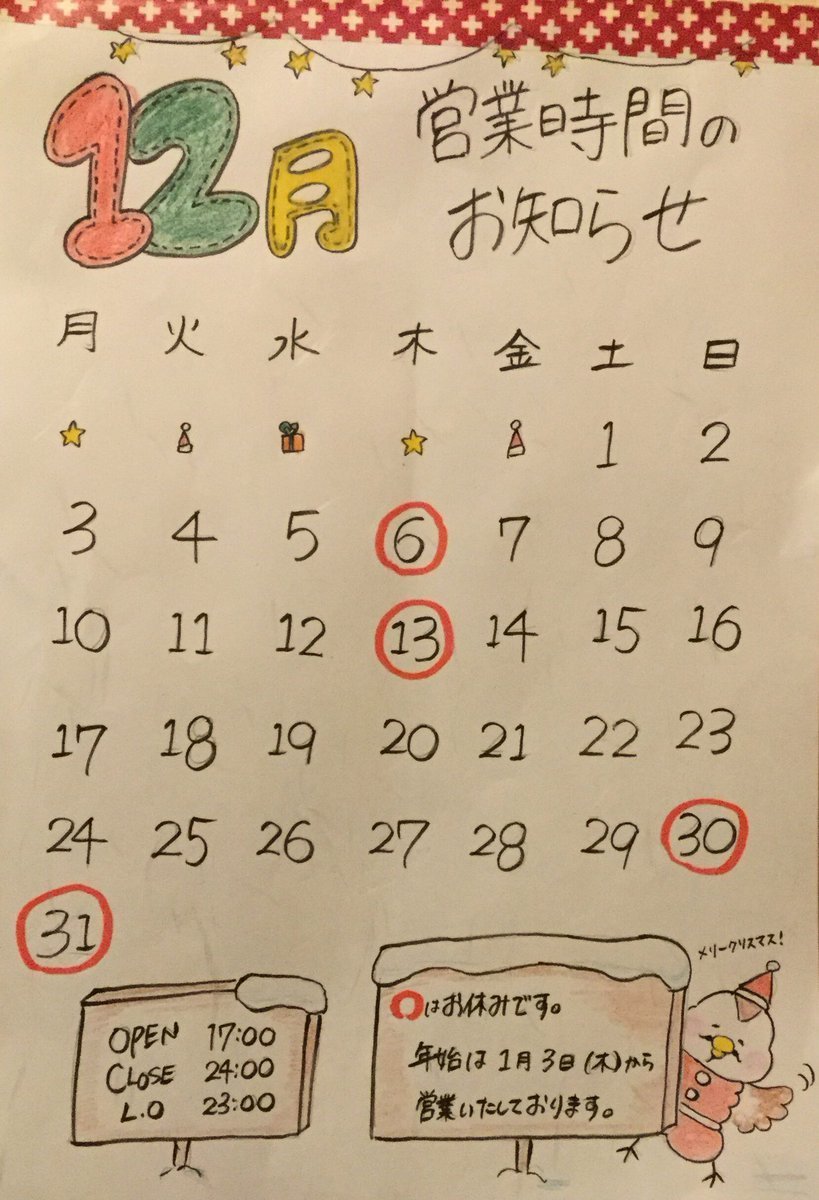 12月
営業時間の
お知らせ
月 火 水 木 金 土 日
1 2
3 4 5 6 7 8 9
10 11 12 13 14 15 16
17 18 19 20 21 22 23
24 25 26 27 28 29 30
31
OPEN 17:00
CLOSE 24:00
L.O 23:00
〇はお休みです。
年始は1月3日(木)から
営業いたしております。
メリークリスマス!